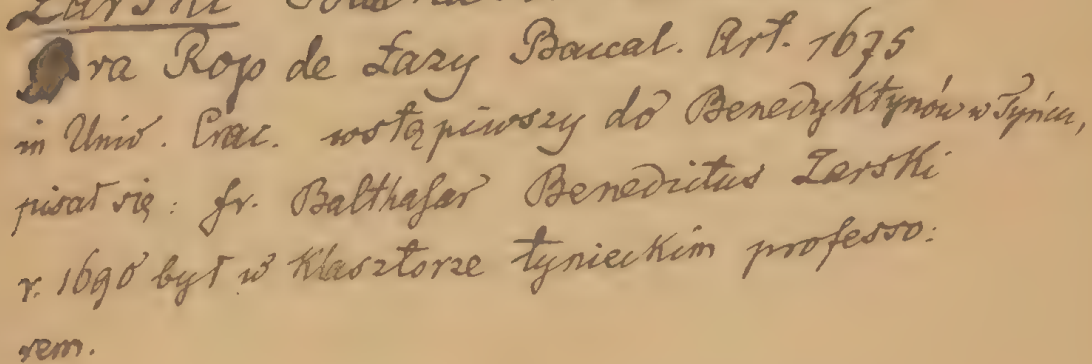 Żarski
ra Rop de Łazy Baccal. Art. 1675
in Univ. Crac. wstąpiwszy do Benedyktynów w Tyńcu,
pisał się: fr. Balthasar Benedictus Zarski
r. 1690 był w Klasztorze tynieckim professo:
rem.